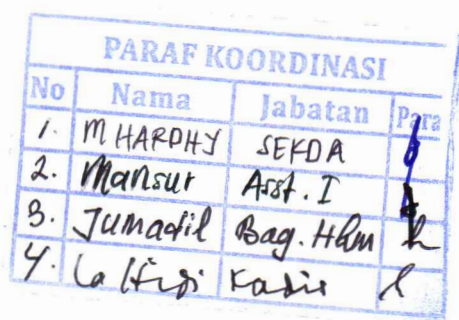 PARAF KOORDINASI
No Nama Jabatan Para
1. M HARDHY SEKDA
2. Mansur Asst. I
3. Jumadil Bag. Hkm
4. La